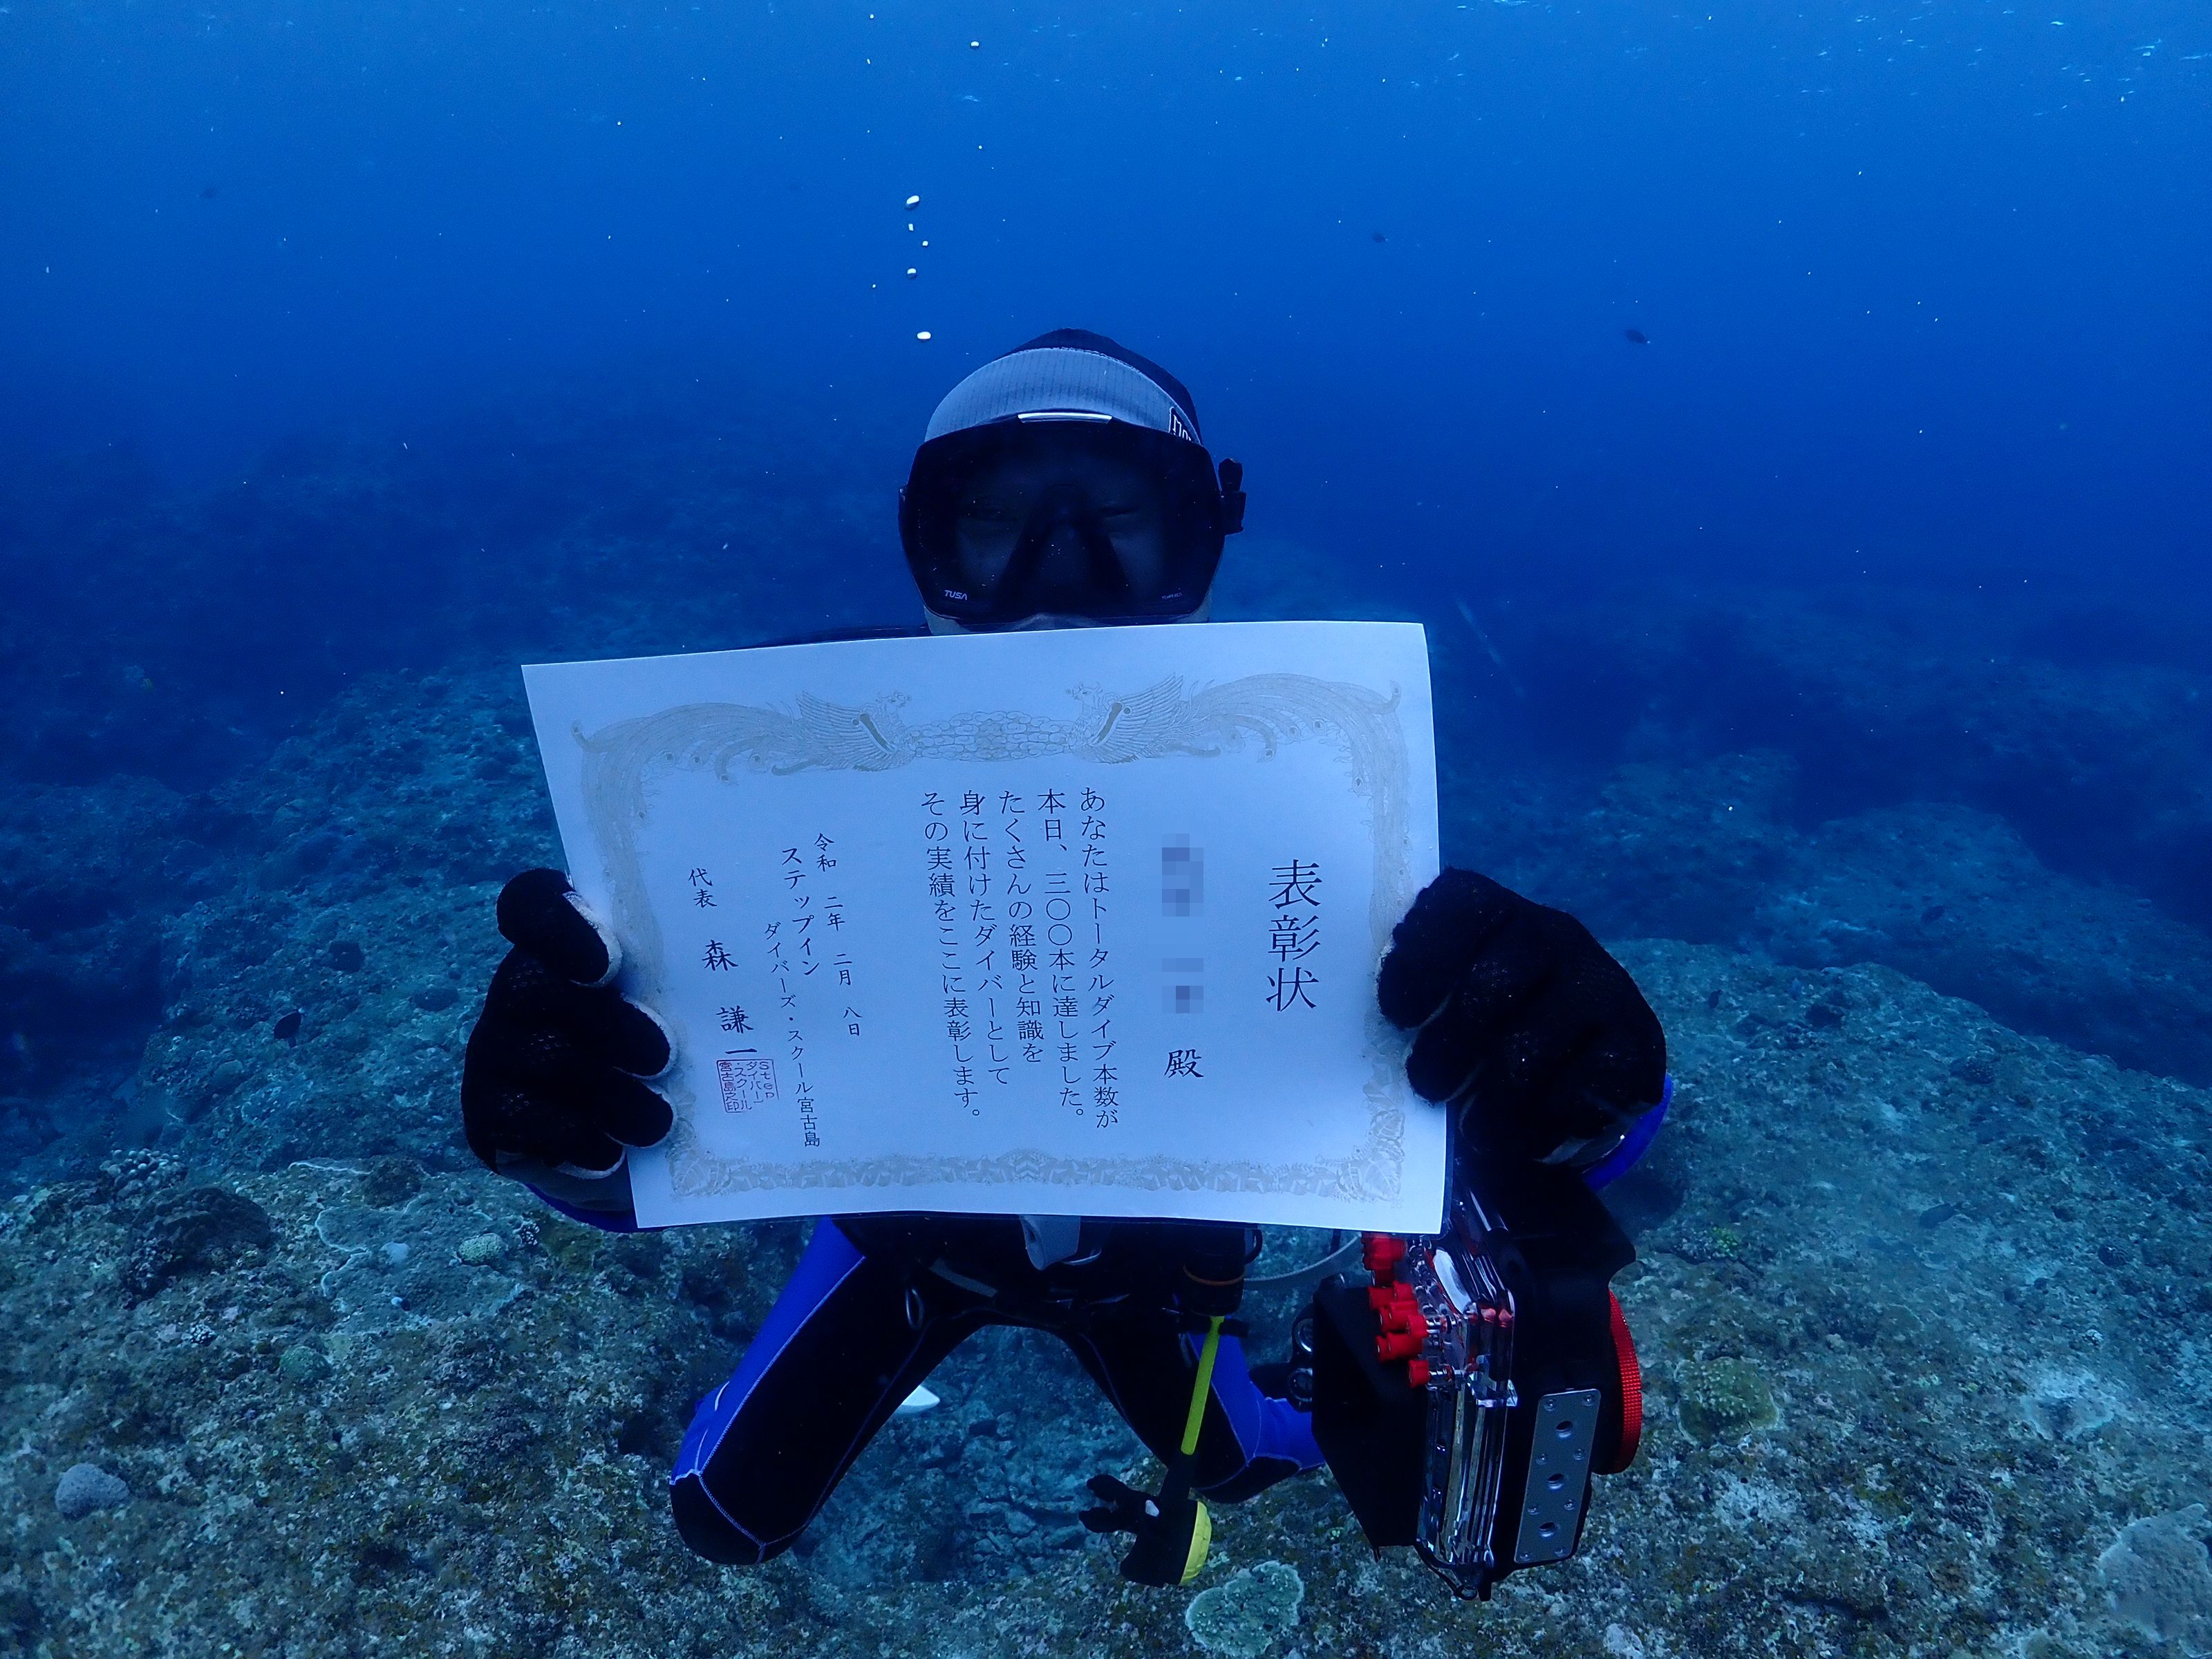 表彰状
殿
あなたはトータルダイブ本数が
本日、三〇〇本に達しました。
たくさんの経験と知識を
身に付けたダイバーとして
その実績をここに表彰します。
令和 二年 二月 八日
ステップイン
ダイバーズ・スクール宮古島
代表 森 謙一
Step
ダイバーズ
・スクール
宮古島之印
TUSA